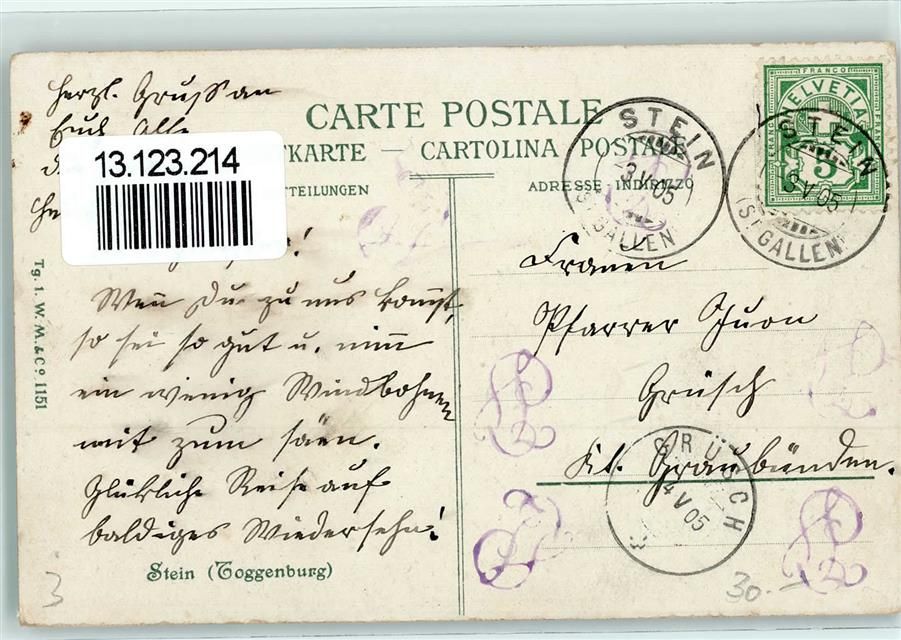 CARTE POSTALE
TKARTE — CARTOLINA POSTALE
TTEILUNGEN
ADRESSE INDIRIZZO
herzl. Gruss an
Euch Alle
13.123.214
!
Wenn Du zu uns kommst,
so sei so gut u. nimm
ein wenig Windbohnen
mit zum säen.
Glückliche Reise auf
baldiges Wiedersehn!
Stein (Toggenburg)
Tg. 1. W. M. & Co. 1151
3
FRANCO
HELVETIA
5
STEIN
3 V 05
(ST GALLEN)
STEIN
3 V 05
(ST GALLEN)
Frauen
Pfarrer Juon
Grüsch
Kt. Graubünden.
GRÜSCH
4 V 05
30.-